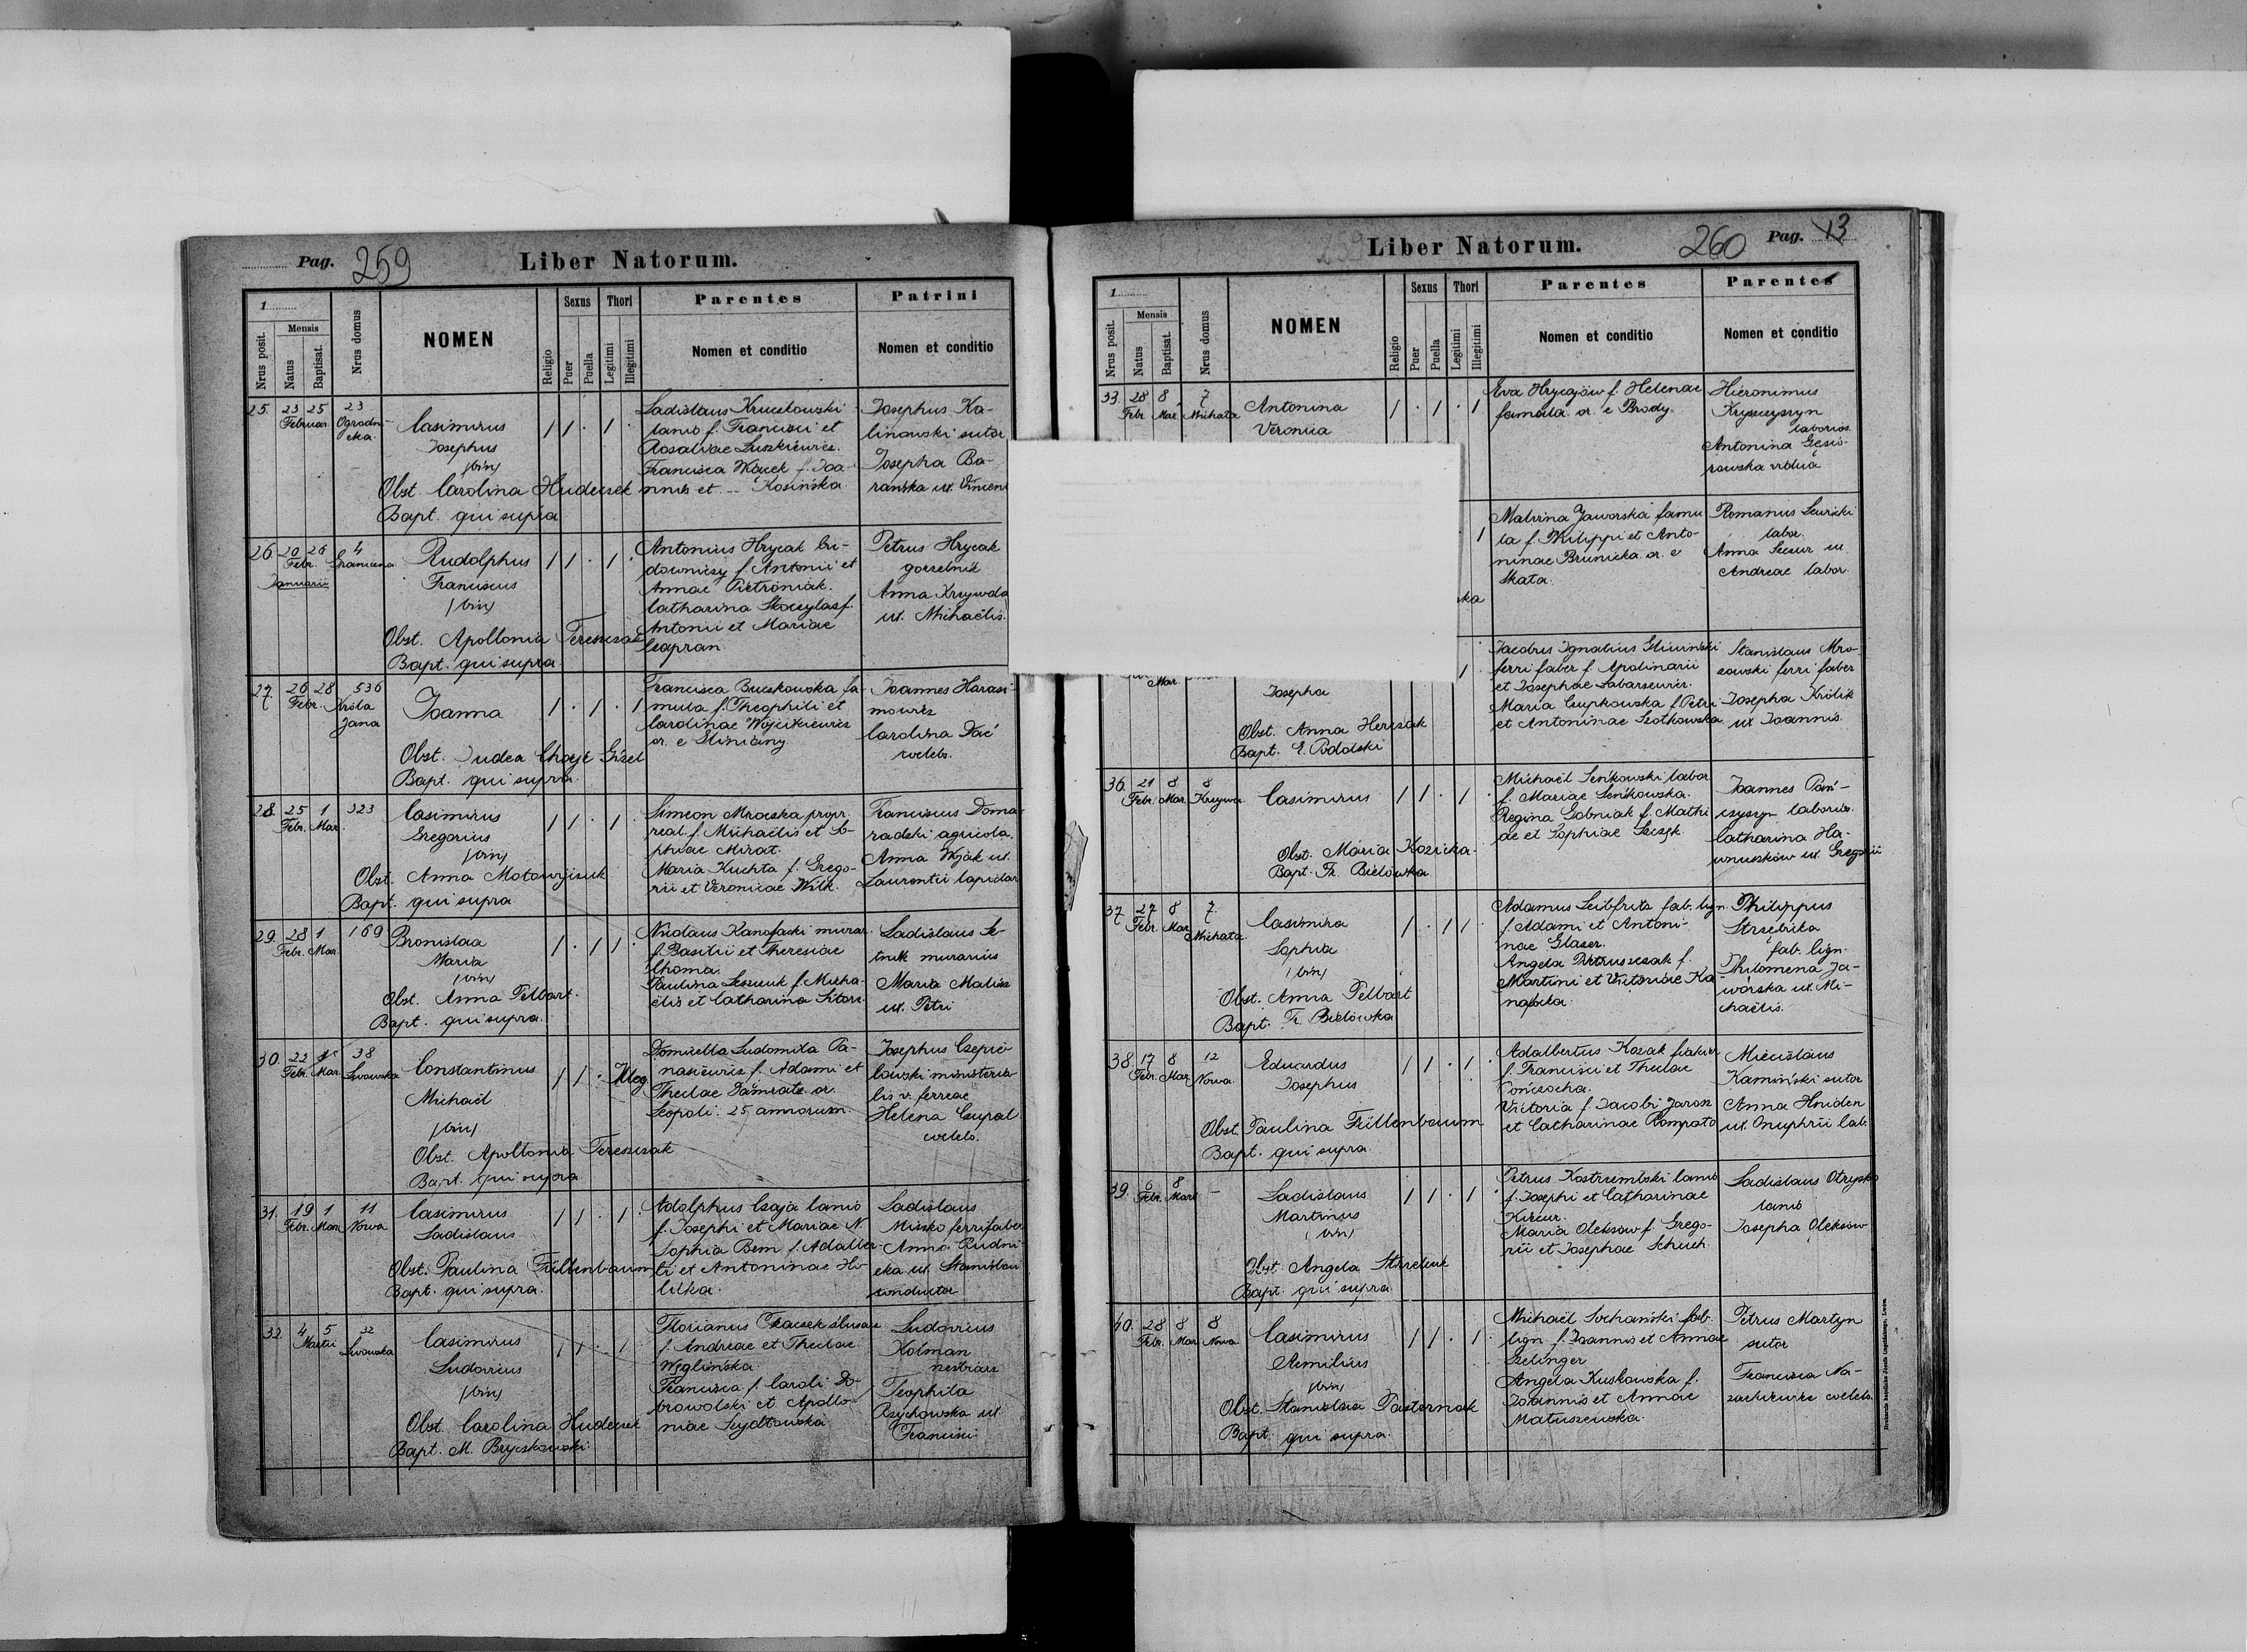 Pag. 259
Liber Natorum.
1
Nrus posit.
Mensis
Natus
Baptisat.
Nrus domus
NOMEN
Religio
Sexus
Puer
Puella
Thori
Legitimi
Illegitimi
Parentes
Nomen et conditio
Patrini
Nomen et conditio
25. 23 25 Februar. 23 Ogrodni-
cka
Casimirus
Josephus
/bin/
Obst. Carolina Hudecsek
Bapt. qui supra
Ladislaus Kruczkowski
lanio f. Francisci et
Rosaliae Luszkiewicz.
Francisca Wacek f. Joa-
nnis et -- Kosińska
Josephus Ka-
linowski sutor
Josepha Ba-
rańska ux. Vincen
26. 20 26 Febr. 4 Graniczna
Januarii
Rudolphus
Franciscus
/bin/
Obst. Apollonia Tereszczak
Bapt. qui supra
Antonius Hrycak bu-
downiczy f. Antonii et
Annae Pietroniak.
Catharina Skoczylas f.
Antonii et Mariae
Czapran
Petrus Hrycak
gorzelnik
Anna Krzywda
ux. Michaëlis.
27. 26 28 Febr. 536 Króla
Jana
Joanna
Obst. Judea Chaje Gisel
Bapt. qui supra.
Francisca Buczkowska fa-
mula f. Theophili et
Carolinae Wojcikiewicz
or. e Sliniany
Joannes Harasi-
mowicz
Carolina Dać
coelebs.
28. 25 1 Febr. Mar. 323
Casimirus
Gregorius
/bin/
Obst. Anna Motowyczuk
Bapt. qui supra
Simeon Mroczka propr.
real. f. Michaëlis et So-
phiae Mirat.
Maria Kuchta f. Grego-
rii et Veronicae Wilk.
Franciscus Doma-
radzki agricola.
Anna Wjak ux.
Laurentii lapidar
29. 28 1 Febr. Mar. 169
Bronislaa
Maria
/bin/
Obst. Anna Pelbart.
Bapt. qui supra.
Nicolaus Kanafaski murar.
f. Basilii et Theresiae
Choma.
Paulina Leszczuk f. Micha-
ëlis et Catharina Sitar.
Ladislaus Le-
murarius
Maria Malisz
ux. Petri
30. 22 1 Febr. Mar. 38 Lwowska
Constantinus
Michaël
/bin/
Illeg
Obst. Apollonia Tereszczak
Bapt. qui supra
Domicella Ludomila Pa-
nasiewicz f. Adami et
Theclae or.
Leopoli. 25 annorum.
Josephus Czepie-
lowski ministeria-
lis v. ferreae
Helena Czupal
coelebs.
31. 19 1 Febr. Mar. 11 Nowa
Casimirus
Ladislaus
Obst. Paulina Füllenbaum
Bapt. qui supra.
Adolphus Czaja lanio
f. Josephi et Mariae N.
Sophia Bem f. Adalber-
ti et Antoninae Ho-
lilka.
Ladislaus
Misko ferrifaber
Anna Rudni-
cka ux. Stanislai
conductor
32. 4 5 Martii 32 Lwowska
Casimirus
Ludovicus
/bin/
Obst. Carolina Hudecsek
Bapt. M. Bryczkowski
Florianus Tkaczek slusarz
f. Andreae et Theclae
Węglińska.
Francisca f. Caroli Do-
browolski et Apollo-
niae Szydłowska
Ludovicus
Kolman
Teophila
Rzychowska ux.
Francisci
Liber Natorum.
260 Pag. 13
1
Nrus posit.
Mensis
Natus
Baptisat.
Nrus domus
NOMEN
Religio
Sexus
Puer
Puella
Thori
Legitimi
Illegitimi
Parentes
Nomen et conditio
Parentes
Nomen et conditio
33. 28 8 Febr. Mar. 7 Michała
Antonina
Veronica
Eva Hrycajów f. Helenae
famula or. e Brody.
Hieronimus
Kryszczyszyn
laborios.
Antonina Gęsio-
rowska vidua
ska
Malvina Jaworska famu
la f. Philippi et Anto-
ninae Brunicka or. e
Skata.
Romanus Lewicki
labor.
Anna Szczur ux
Andreae labor.
Mar.
Josepha
Obst. Anna Herczak
Bapt. E. Podolski
Jacobus Ignatius Gliwiński
ferri faber f. Apolinarii
et Josephae Labarzewicz.
Maria Czupkowska f. Petri
et Antoninae Szotkowska
Stanislaus Mro-
zowski ferri faber
Josepha Królik
ux Joannis.
36. 21 8 Febr. Mar. 8 Krzywa
Casimirus
Obst. Maria Kozicka.
Bapt. Fr. Bielówka
Michaël Leńkowski labor
f. Mariae Leńkowska.
Regina Gabniak f. Mathi
ae et Sophiae Szczyk
Joannes Pań-
czyszyn laborios.
Catharina Ha-
wruszków ux. Gregorii
37. 27 8 Febr. Mar. 7. Michała
Casimira
Sophia
/bin/
Obst. Anna Pelbart
Bapt. Fr. Bielówka
Adamus Leibfritz fab. lign.
f. Adami et Antoni-
nae Glaser.
Angela Pietruszczak f.
Martini et Victoriae Ka
nafocka.
Philippus
Strzebicka
fab. lign.
Philomena Ja-
worska ux. Mi-
chaëlis.
38. 17 8 Febr. Mar. 12 Nowa
Eduardus
Josephus
Obst. Paulina Füllenbaum
Bapt. qui supra.
Adalbertus Kozak fiakier
f. Francisci et Theclae
Pończocha.
Victoria f. Jacobi Jarosz
et Catharinae Rompało
Miecislaus
Kamiński sutor
Anna Hniden
ux. Onuphrii lab.
39. 6 8 Febr. Mart -
Ladislaus
Martinus
/bin/
Obst. Angela Strzelczuk
Bapt. qui supra.
Petrus Kostrzembski lanio
f. Josephi et Catharinae
Kiczur.
Maria Oleksów f. Grego-
rii et Josephae Schuch.
Ladislaus Otrysko
lanio
Josepha Oleksów
40. 28 8 Febr. Mar 8 Nowa
Casimirus
Aemilius
/bin/
Obst. Stanislaa Pasternak
Bapt. qui supra.
Michaël Sochański fab.
lign. f. Joannis et Annae
Szelinger
Angela Kuskowska f.
Joannis et Annae
Matuszewska.
Petrus Martyn
sutor
Francisca Na-
coelebs.